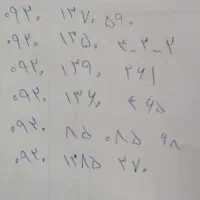 ۰۹۳۰ ۱۳۷۰ ۵۹۰
۰۹۲۰ ۱۳۵۰ ۴-۳-۲
۰۹۳۰ ۱۳۹۰ ۲۶۱
۰۹۳۰ ۱۳۶۰ ۴۶۵
۰۹۲۰ ۸۵ ۰۸۵ ۹۸
۰۹۲۰ ۱۳۸۵ ۳۷۰